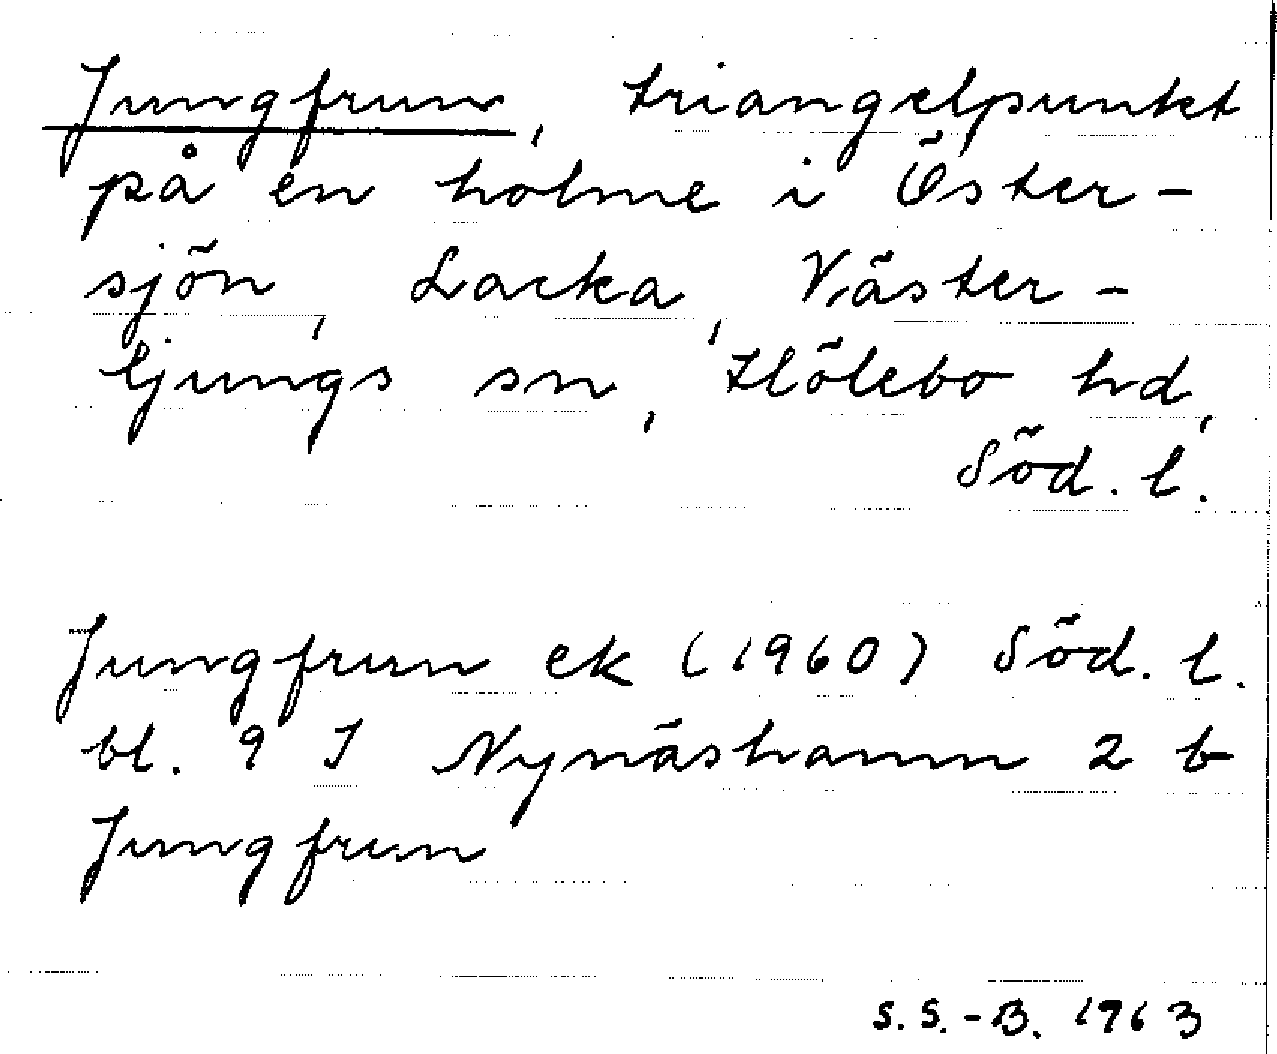 Jungfrun, triangelpunkt
på en holme i Öster-
sjön, Lacka, Väster-
ljungs sn, Hölebo hd,
Söd. l.
Jungfrun ek (1960) Söd. l.
bl. 9 I Nynäshamn 2 b
Jungfrun
S.S.-B. 1963